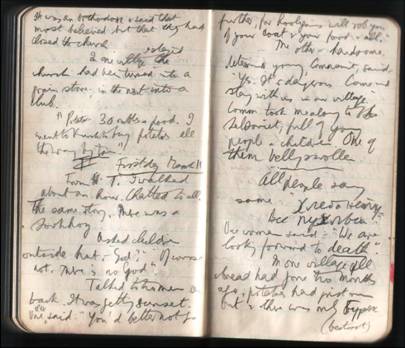 It was an orthodox & said that
most believed but that they had
closed the church.
In one village the
church had been turned into a
grain store, in the next into a
club.
"Potato 30 roubles a pood. I
went to to buy potatoes all
the way by
First day March 11
From H. T. I walked
about an hour. Chatted to all.
The same story. There was a
Sovkhoz
Asked children
outside hut, "God?" "Of course
not. There is no god".
Talked to two men
back. It was getting sunset.
One said: "You'd better not go
further, for hooligans will rob you
of your coat & your food & all."
The other, a handsome,
determined young Communist, said
"Yes. It's dangerous. Come and
stay with us in our village."
Comm. took me along to the
Selsoviet, full of young
people & children. One of
them belly swollen
All people say
same
One woman said: "We are
look forward to death"
In one village all
bread had gone two months
ago, potatoes had just run
out & there was only
(beetroot)